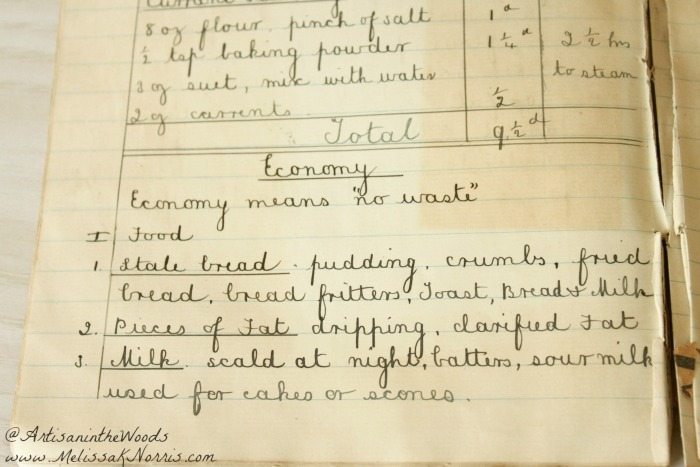 8 oz flour, pinch of salt 1 d
½ tsp baking powder 1 ¼ d 2 ½ hrs
3 oz suet, mix with water to steam
2 oz currents. ½
Total 9 ½ d
Economy
Economy means "no waste"
I Food
1. Stale bread. pudding, crumbs, fried
bread, bread fritters, Toast, Bread & Milk
2. Pieces of Fat dripping, clarified Fat
3. Milk. scald at night, batters, sour milk
used for cakes or scones.
@ArtisanintheWoods
www.MelissaKNorris.com